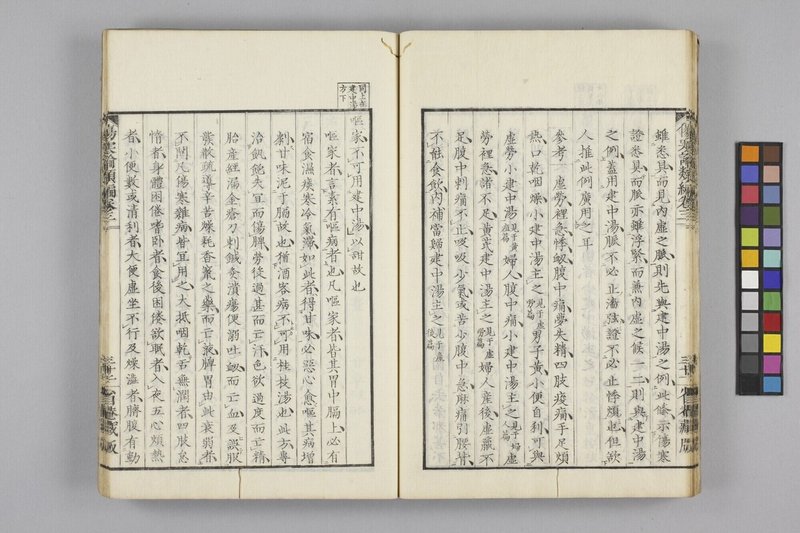 雖悉具而見內虛之脈則先與建中湯之例此條示傷寒
證悉具而脈亦雖浮緊而兼內虛之候一二則與建中湯
之例蓋用建中湯脈不必止濇弦證不必止悸煩也但欲
人推此例廣用之耳
參考 虛勞裡急悸衂腹中痛夢失精四肢痠痛手足煩
熱口乾咽燥小建中湯主之見于虛勞篇男子黃小便自利可與
虛勞小建中湯見于黃疸篇婦人腹中痛小建中湯主之見于婦人篇虛
勞裡急諸不足黃芪建中湯主之見于虛勞篇婦人產後虛羸不
足腹中刺痛不止吸吸少氣或苦少腹中急摩痛引腰背
不能食飲內補當歸建中湯主之見于產後篇
同上在
建中湯
方下
嘔家不可用建中湯以甜故也
嘔家者言素有嘔病者也凡嘔家者皆其胃中膈上必有
宿食濕痰寒冷氣滯如此者得甘味必惡心愈嘔其病增
劇甘味泥于膈故也猶酒客病不可用桂枝湯也此方專
治飢飽失宜而傷脾勞役過甚而亡汗色欲過度而亡精
胎產經漏金瘡刀刺鍼灸潰瘍便溺吐衂而亡血及誤服
發散疏導辛苦燥耗香竄之藥而亡液脾胃由此衰弱者
不問凡傷寒雜病皆宜用之大抵咽乾舌無潤者四肢怠
惰者身體困倦嗜臥者食後困倦欲眠者入夜五心煩熱
者小便數或清利者大便虛坐不行及燥濇者臍腹有動
傷寒論類編卷三